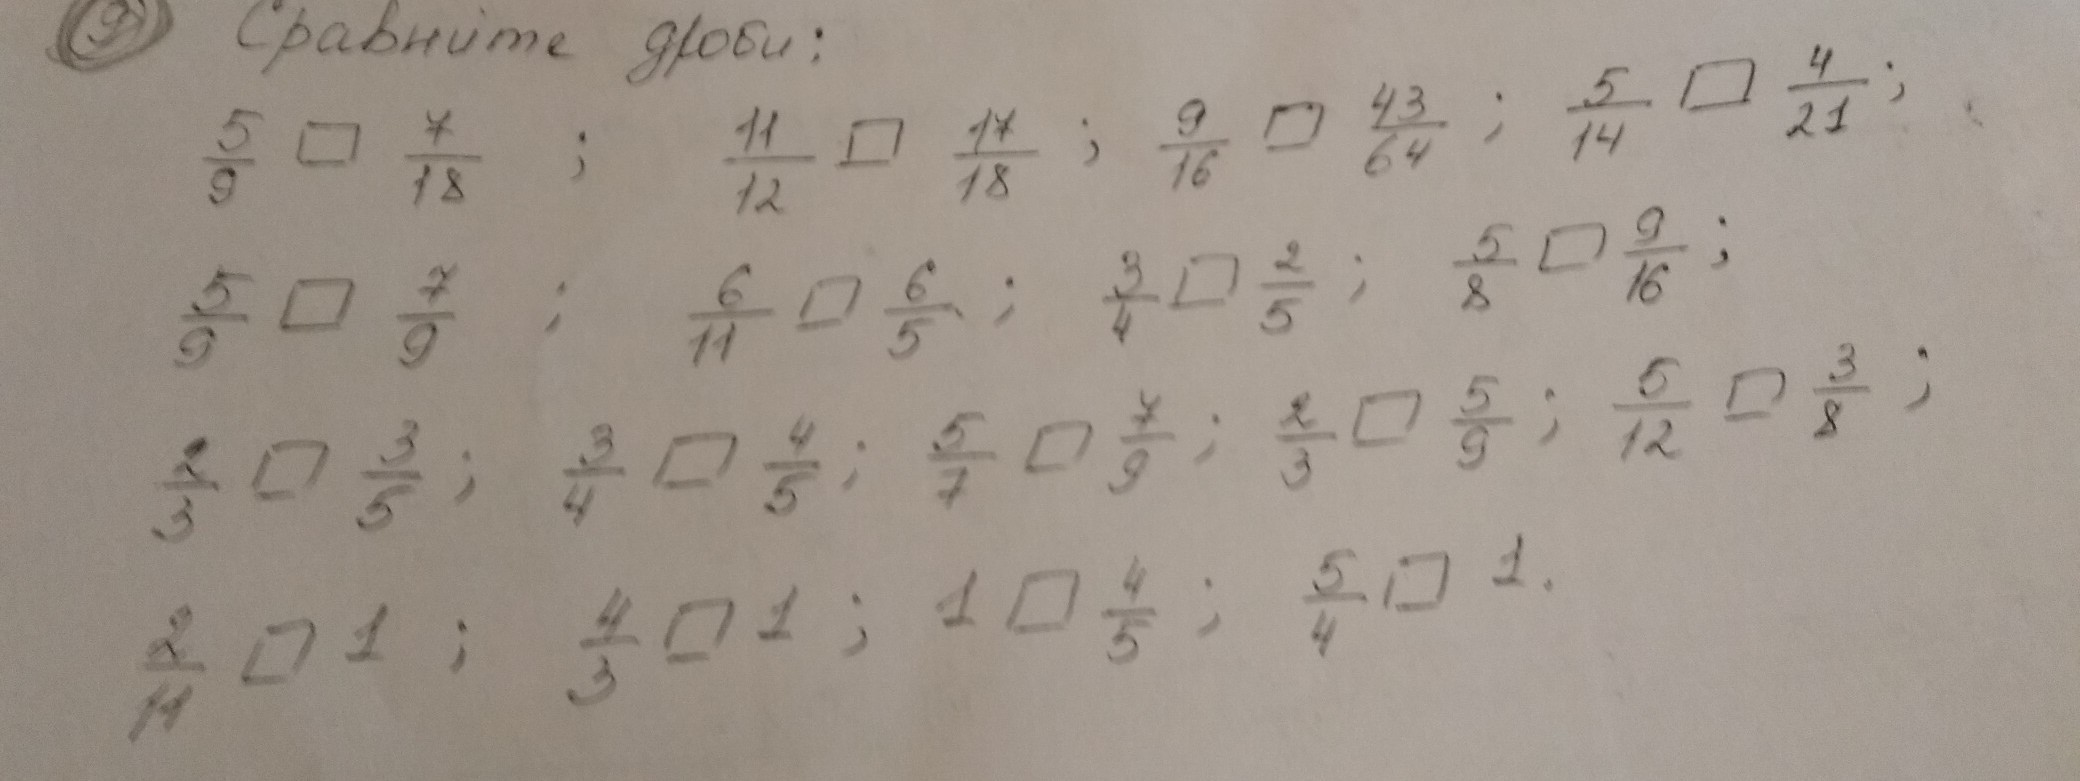 9 Сравните дроби:
5/9 □ 7/18 ; 11/12 □ 17/18 ; 9/16 □ 43/64 ; 5/14 □ 4/21 ;
5/9 □ 7/9 ; 6/11 □ 6/5 ; 3/4 □ 2/5 ; 5/8 □ 9/16 ;
2/3 □ 3/5 ; 3/4 □ 4/5 ; 5/7 □ 7/9 ; 2/3 □ 5/9 ; 5/12 □ 3/8 ;
2/11 □ 1 ; 4/3 □ 1 ; 1 □ 4/5 ; 5/4 □ 1.